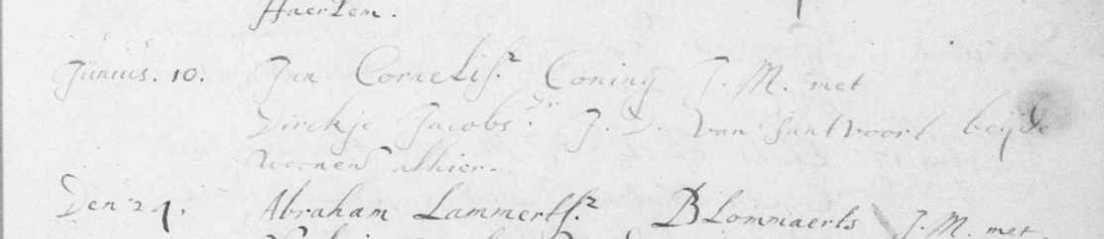 Haerlem.
Junius. 10. Jan Cornelisz Coning J. M. met
Dirckje Jacobsdr J. D. van Santvoort beijde
wonen alhier.
Den 24. Abraham Lammertsz Blommaerts J. M. met